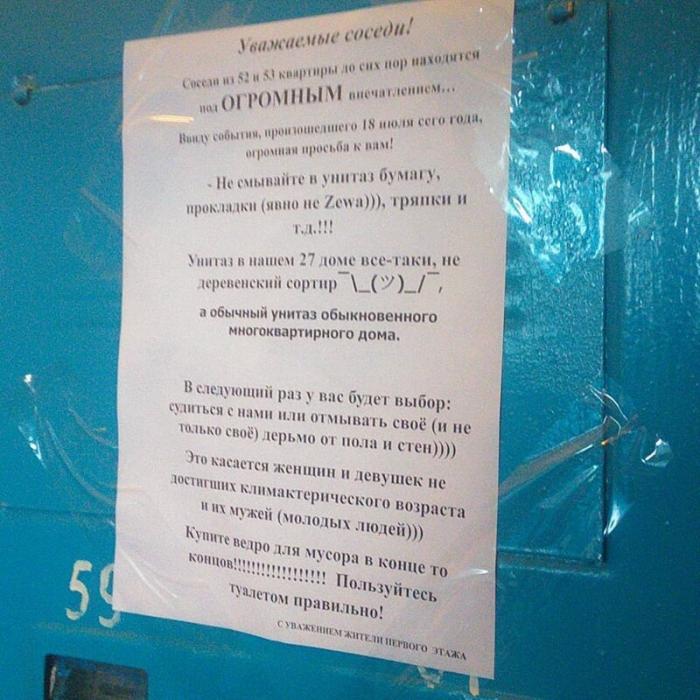 Уважаемые соседи!
Соседи из 52 и 53 квартиры до сих пор находятся
под ОГРОМНЫМ впечатлением...
Ввиду события, произошедшего 18 июля сего года,
огромная просьба к вам!
- Не смывайте в унитаз бумагу,
прокладки (явно не Zewa))), тряпки и
т.д.!!!
Унитаз в нашем 27 доме все-таки, не
деревенский сортир ¯\_(ツ)_/¯,
а обычный унитаз обыкновенного
многоквартирного дома.
В следующий раз у вас будет выбор:
судиться с нами или отмывать своё (и не
только своё) дерьмо от пола и стен))))
Это касается женщин и девушек не
достигших климактерического возраста
и их мужей (молодых людей)))
Купите ведро для мусора в конце то
концов!!!!!!!!!!!!!!!!!! Пользуйтесь
туалетом правильно!
С УВАЖЕНИЕМ ЖИТЕЛИ ПЕРВОГО ЭТАЖА
59